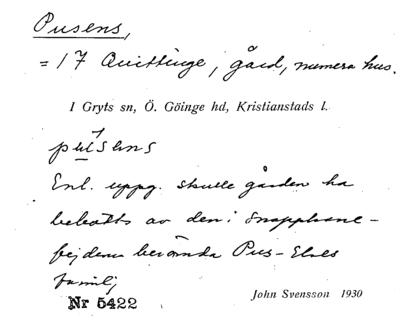 Pusens,
= 17 Quittinge, gård, numera hus.
I Gryts sn, Ö. Göinge hd, Kristianstads l.
Enl. uppg. skulle gården ha
bebotts av den i snapphane-
fejdena berömda Pus-Elses
familj
Nr 5422
John Svensson 1930